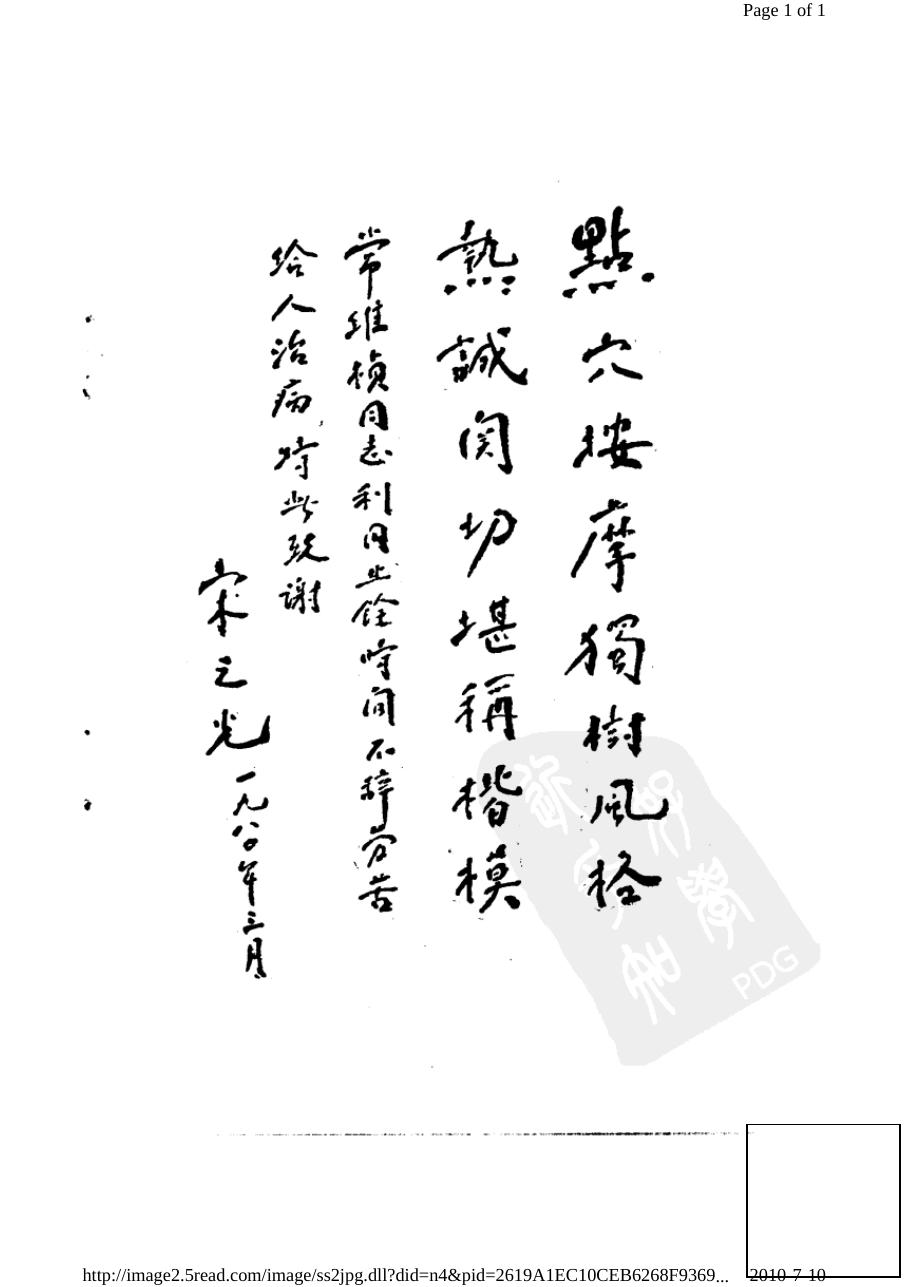 Page 1 of 1
點穴按摩獨樹風格
熱誠関切堪稱楷模
常維楨同志利用业馀時间不辞劳苦
给人治病,特此致谢
宋之光
一九八〇年三月
PDG
http://image2.5read.com/image/ss2jpg.dll?did=n4&pid=2619A1EC10CEB6268F9369...
2010-7-10